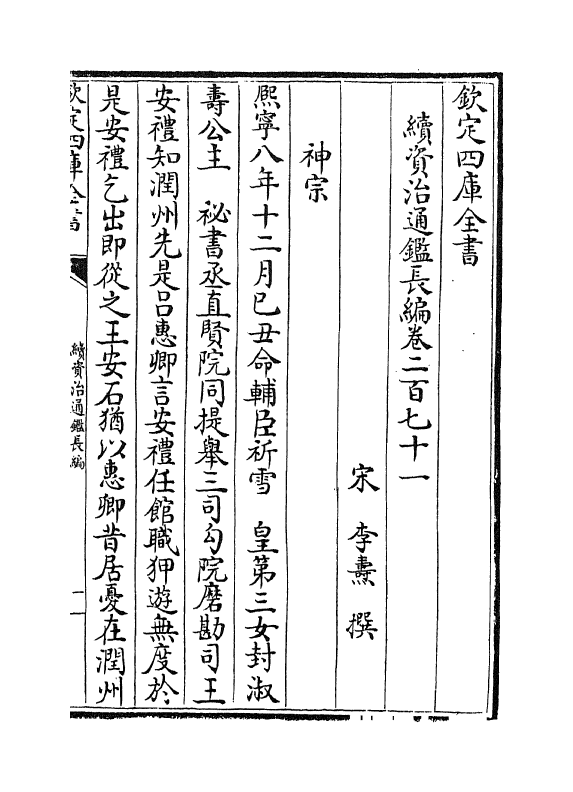 欽定四庫全書
續資治通鑑長編卷二百七十一
宋 李燾 撰
神宗
熈寧八年十二月已丑命輔臣祈雪 皇第三女封淑
壽公主 祕書丞直賢院同提舉三司勾院磨勘司王
安禮知潤州先是吕惠卿言安禮任館職狎遊無度於
是安禮乞出即從之王安石猶以惠卿昔居憂在潤州
欽定四庫全書
續資治通鑑長編